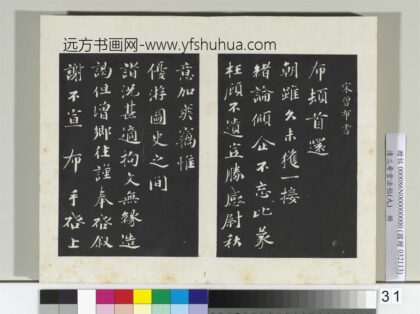 远方书画网-www.yfshuhua.com
宋曾布書
布頓首還
朝雖久未獲一接
緒論傾企不忘比蒙
枉顧不遺豈勝感尉秋
意加爽竊惟
優游圖史之間
諧況甚適拘文無緣造
謁但增鄉往謹奉啓叙
謝不宣 布 手啓上
清三希堂法帖(九) 冊
31